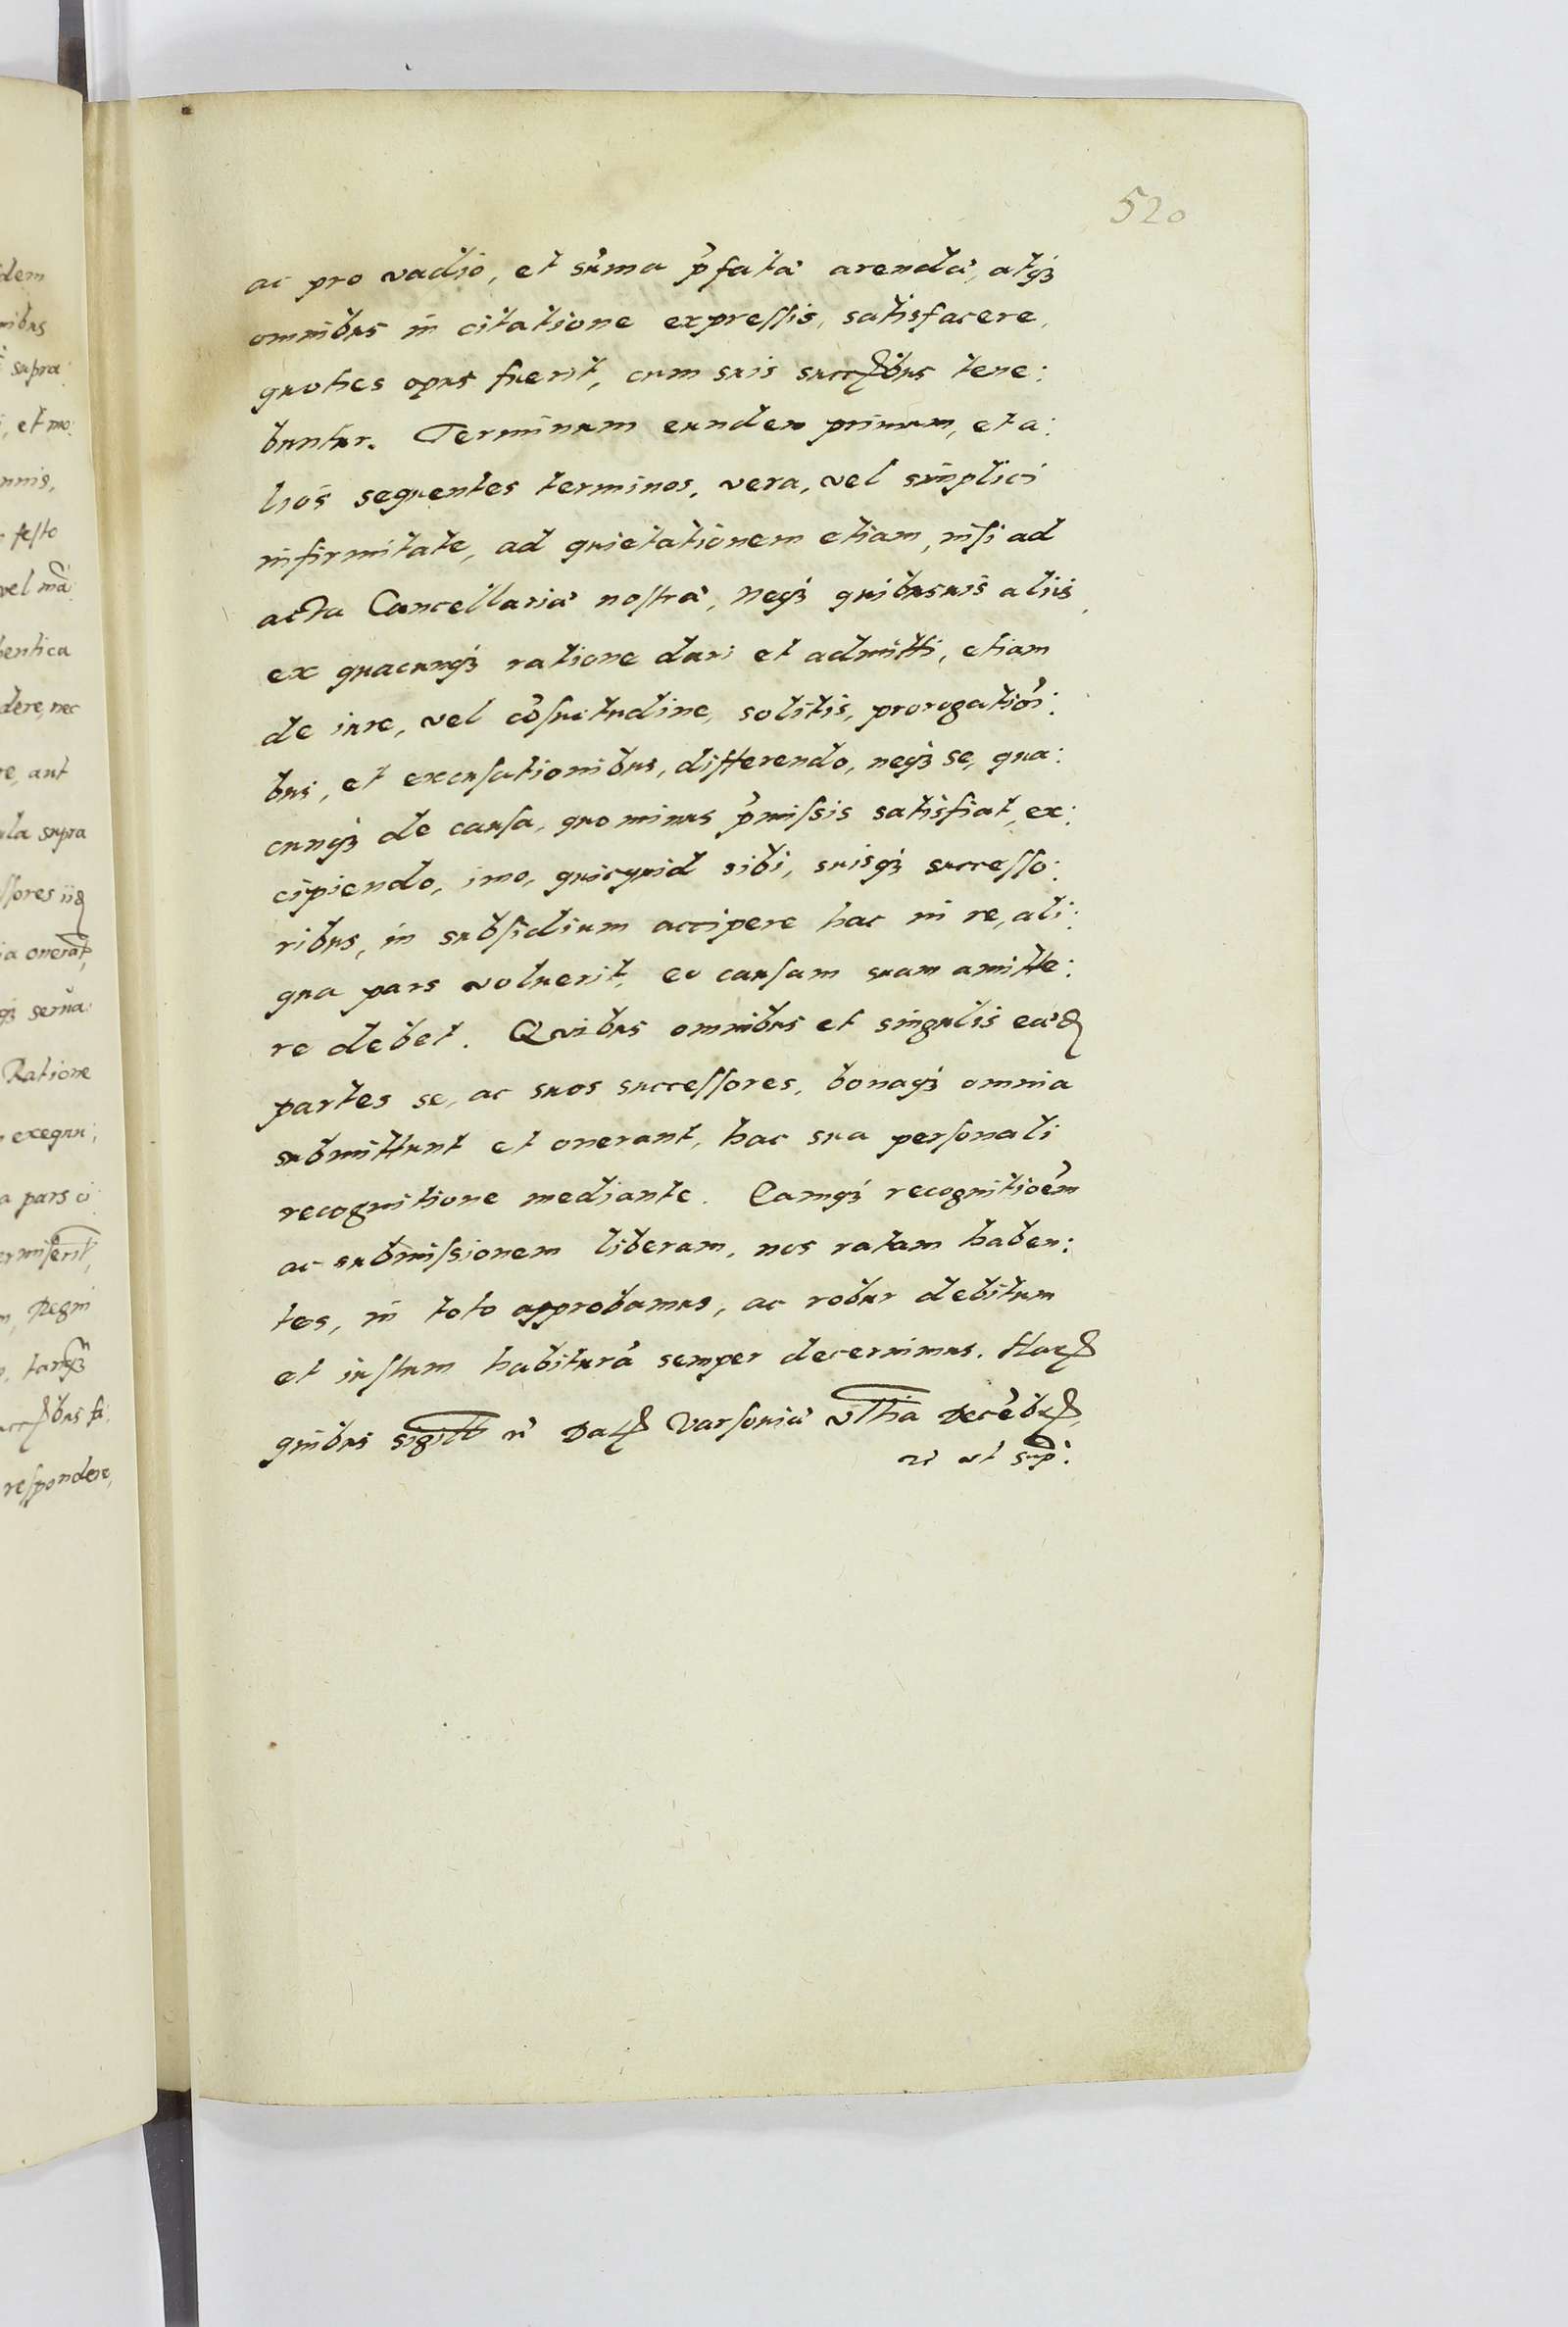 520
ac pro vadio, et sũma p̃fatæ arendæ, atq₃
omnibus in citatione expressis, satisfacere,
quoties opus fuerit, cum suis succ̃bus tene:
buntur. Terminum eundem primum, et a:
lios sequentes terminos, vera, vel simplici
infirmitate, ad quietationem etiam, nisi ad
acta Cancellariæ nostræ, neq₃ quibusuis aliis,
ex quacunq₃ ratione dari et admitti, etiam
de iure, vel cõsuetudine, solitis, prorogatiõi:
bus, et excusationibus, differendo, neq₃ se, qua:
cunq₃ de causa, quominus p̃missis satisfiat, ex:
cipiendo, imo, quicquid sibi, suisq₃ successo:
ribus, in subsidium accipere hac in re, ali:
qua pars voluerit, eo causam suam amitte:
re debet. Quibus omnibus et singulis eæd
partes se, ac suos successores, bonaq₃ omnia
submittunt et onerant, hac sua personali
recognitione mediante. Eamq₃ recognitioẽm
ac submissionem liberam, nos ratam haben:
tes, in toto approbamus, ac robur debitum
et iustum habiturã semper decernimus. Har
quibus sigill Dat Varsouiæ vltĩa Decẽb
ut sup:
dem
nibus
supra:
, et mo:
nnis,
festo
vel mã:
hentica
dere, nec
re, aut
ula supra
ssores iid
ia onerãt,
q₃ serua:
Ratione
exequu:
a pars ci
ermiserit,
m, Regni
tanq₃
respondere,